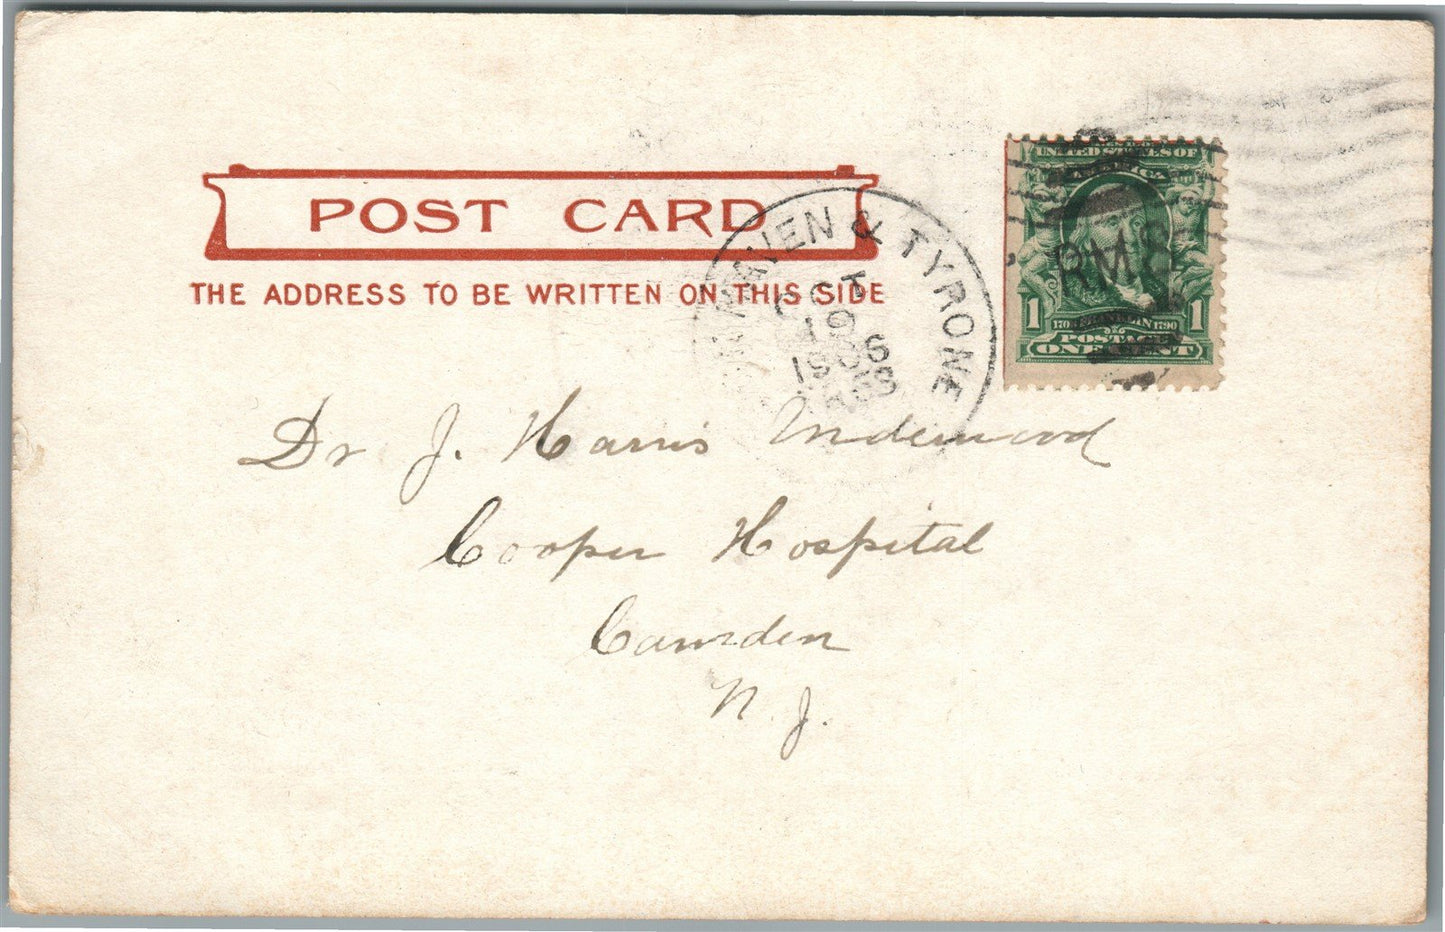 POST CARD
THE ADDRESS TO BE WRITTEN ON THIS SIDE
HAVEN & TYRONE
OCT
19
1906
RMS
UNITED STATES OF
1 FRANKLIN 1790 1
POSTAGE
ONE CENT
Dr J. Harris Underwood
Cooper Hospital
Camden
N. J.